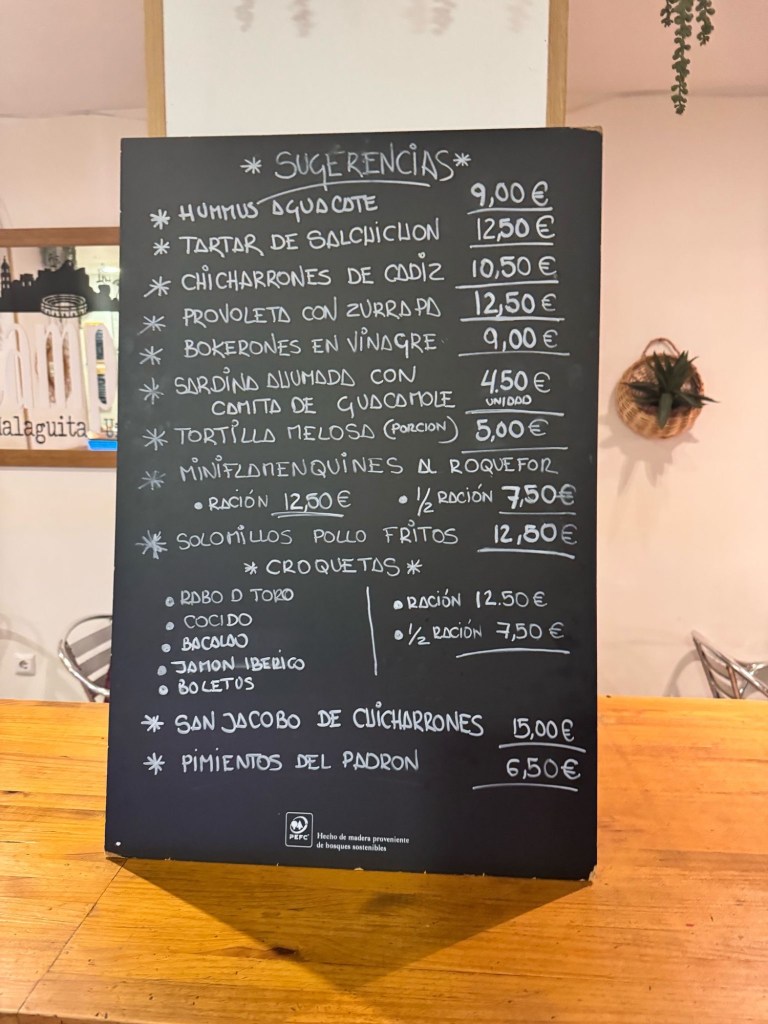 * SUGERENCIAS *
* HUMMUS AGUACATE 9,00 €
* TARTAR DE SALCHICHON 12,50 €
* CHICHARRONES DE CADIZ 10,50 €
* PROVOLETA CON ZURRAPA 12,50 €
* BOKERONES EN VINAGRE 9,00 €
* SARDINA AHUMADA CON 4.50 €
CAMITA DE GUACAMOLE UNIDAD
* TORTILLA MELOSA (PORCION) 5,00 €
* MINIFLAMENQUINES AL ROQUEFOR
• RACIÓN 12,50 € • 1/2 RACIÓN 7,50 €
* SOLOMILLOS POLLO FRITOS 12,50 €
* CROQUETAS *
• RABO D TORO • RACIÓN 12.50 €
• COCIDO • 1/2 RACIÓN 7,50 €
• BACALAO
• JAMON IBERICO
• BOLETUS
* SAN JACOBO DE CHICHARRONES 15,00 €
* PIMIENTOS DEL PADRON 6,50 €
PEFC
Hecho de madera proveniente
de bosques sostenibles
alaguita